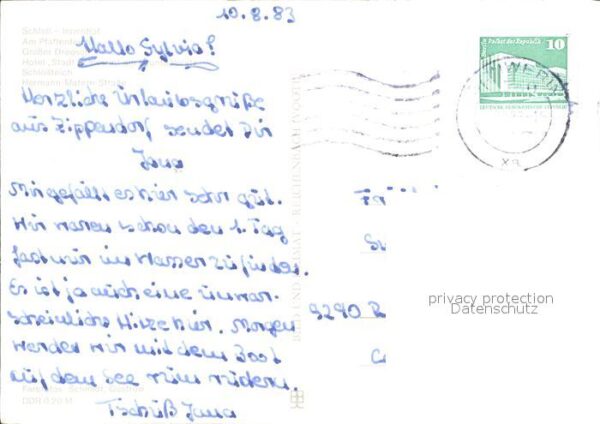 10.8.83
Hallo Sylvia!
Herzliche Urlaubsgrüße
aus Zippendorf sendet Dir
Jana
Mir gefällt es hier sehr gut.
Wir waren schon den 1. Tag
fast nur im Wasser zu finden.
Es ist ja auch eine unwahr-
scheinliche Hitze hier. Morgen
werden wir mit dem Boot
auf dem See rum rudern.
Tschüß Jana
Schloß
Am Pfaffenteich
Großer Dreesch
Hotel „Stadt
Schloßteich
Hermann-Matern-Straße
DDR 0,20 M
BILD UND HEIMAT REICHENBACH
Berlin Palast der Republik
10
SCHWERIN
Fr
St
9290 R
C
privacy protection
Datenschutz